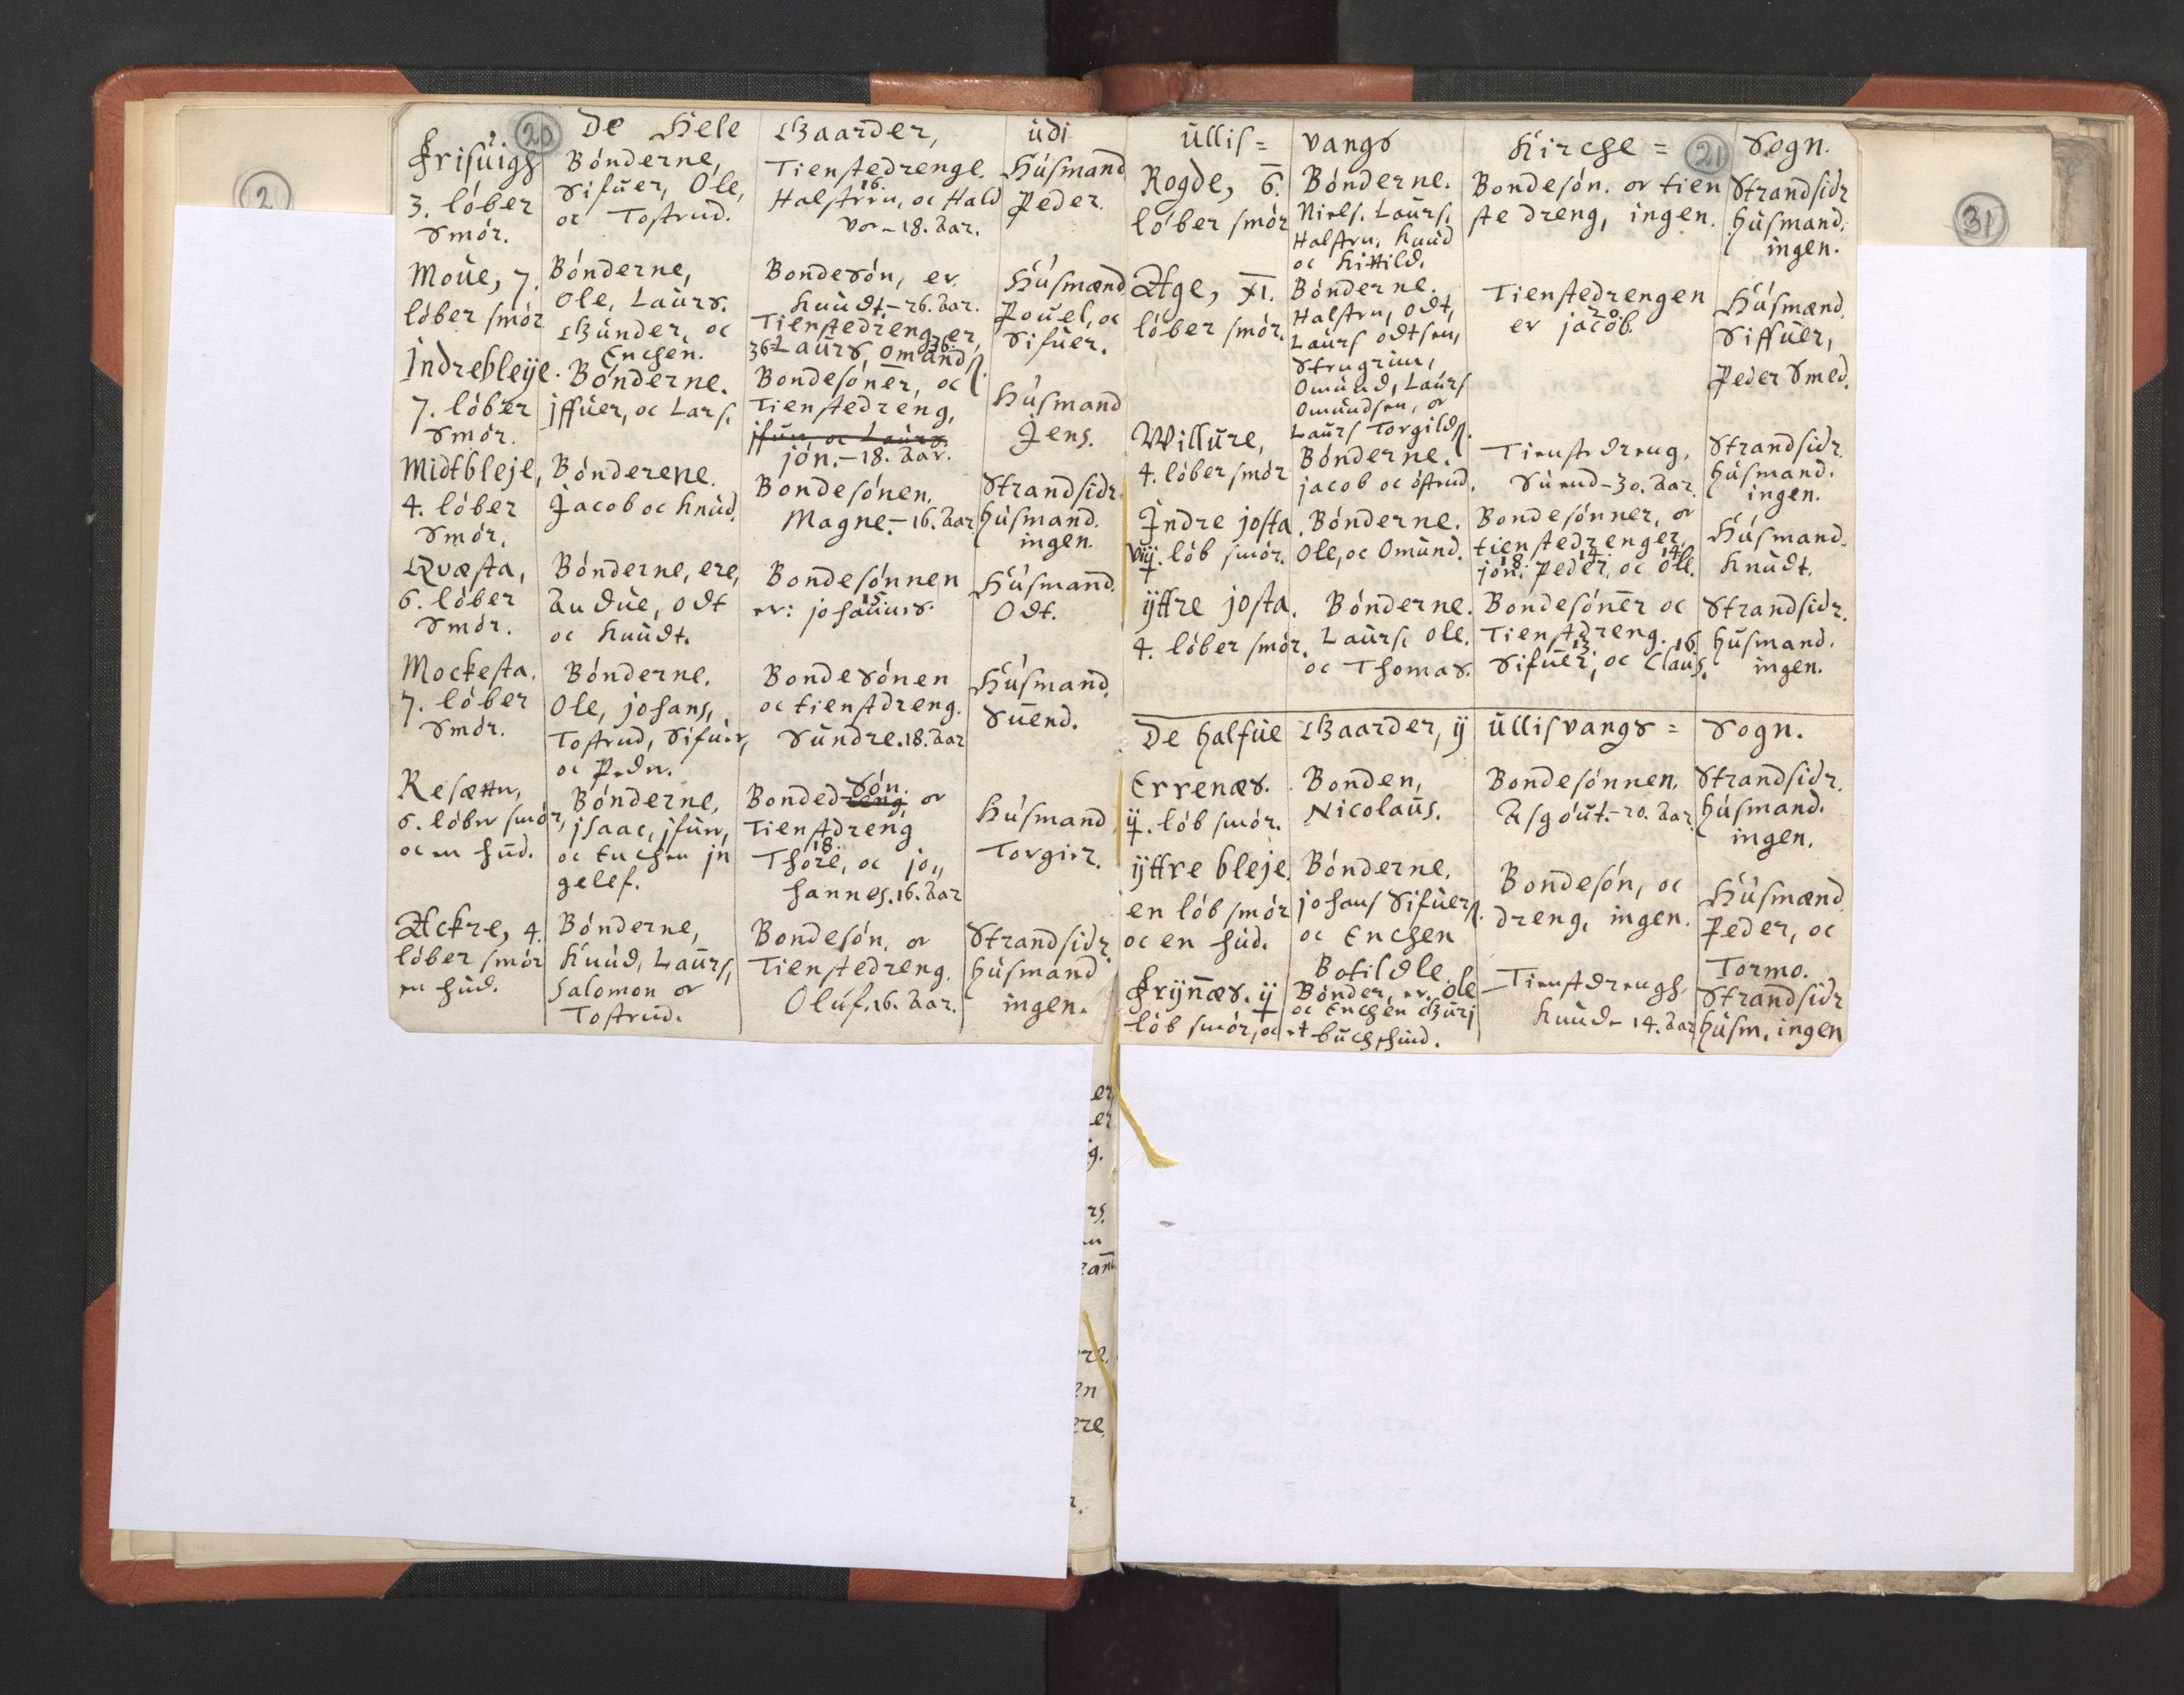 20
De Hele Gaarder, udi
Frisuigh
3. løber
Smør.
Bønderne,
Sifuer, Ole,
oc Tostend.
Tienstedrenge.
16.
Halsten, oc Hald
vor - 18. Aar.
Husmand
Peder.
Moue, 7.
løber smør
Bønderne,
Ole, Laurs.
Gunder, oc
Enchen.
Bondesøn, er
Knudt - 26. Aar.
Tienstedrenger,
36 Laurs, Omands. 36.
Husmænd
Pouel, oc
Sifuer.
Indrebleije.
7. løber
Smør.
Bønderne.
jffuer, oc Lars.
Bondesøner, oc
Tienstedreng,
jfuer, oc Laurs.
jon. - 18. Aar.
Husmand
Jens.
Midtbleje,
4. løber
Smør.
Bønderene.
Jacob oc Knud.
Bondesønen,
Magne - 16. Aar
Strandsidr.
husmand.
ingen.
Qvæsta,
6. løber
Smør.
Bønderne, ere,
Audue, Odt
oc Knudt.
Bondesønnen
15
er: johannes.
Husmand.
Odt.
Mockesta.
7. løber
Smør.
Bønderne.
Ole, johans,
Tostend, Sifuer,
oc Peder.
Bondesønen
oc tienstdreng.
Sundre. 18. Aar
Husmand.
Suend.
Resætter,
6. løber smør,
oc en hud.
Bønderne,
jsaac, jfuer,
oc Enchen jn
gelef.
søn.
Bondedreng, oc
Tienstdreng
18.
Thore, oc jo,,
hannes. 16. Aar
Husmand
Torgier.
Ackre, 4.
løber smør
en hud.
Bønderne,
Knud, Laurs,
Salomon oc
Tostend.
Bondesøn, oc
Tienstedreng.
Oluf. 16. Aar.
Strandsidr.
husmand
ingen.
21
Ullis= vangs Kirche= Sogn.
Rogde, 6.
løber smør
Bønderne.
Niels, Laurs,
Halsten, Knud
oc Kittild.
Bondesøn, oc tien
ste dreng, ingen.
Strandsidr
husmand.
ingen.
Age, XI.
løber smør.
Bønderne.
Halsten, Odt,
Laurs Odtsen,
Stengrim,
Omund, Laurs
Omundsen, oc
Laurs Torgilds.
Tienstedrengen
20
er jacob.
Husmænd.
Siffuer,
Peder Smed.
Willure,
4. løber smør
Bønderne.
jacob oc østend.
Tienstedreng.
Suend - 30. Aar.
Strandsidr.
husmand.
ingen.
Indre josta.
viij. løb smør.
Bønderne.
Ole, oc Omund.
Bondesønner, oc
tienstedrenger.
18 14 14
jon. Peder, oc Ole.
Husmand.
Knudt.
ijttre josta.
4. løber smør.
Bønderne.
Laurs, Ole.
oc Thomas.
Bondesøner oc
Tienstdreng.
13 16
Sifuer, oc Claus.
Strandsidr.
husmand.
ingen.
De halfue Gaarder, ij Ullisvangs= Sogn.
Errenæs.
ij. løb smør.
Bonden,
Nicolaus.
Bondesønnen.
Asgout - 20. Aar.
Strandsidr.
husmand.
ingen.
ijttre bleje.
en løb smør
oc en hud.
Bønderne.
johans Sifuers.
oc Enchen
Botildle.
Bondesøn, oc
dreng, ingen.
Husmænd
Peder, oc
Tormo.
Frijnæs. ij
løb smør, oc et buchshind.
Bønder, er. Ole
oc Enchen Gurj
Tienstdrengh
Knud - 14. Aar
Strandsidr
husm. ingen
2
31